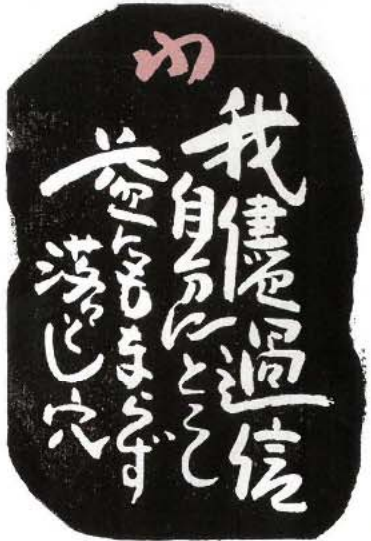 わ
我儘過信
自分にとって
益にもならず
落とし穴